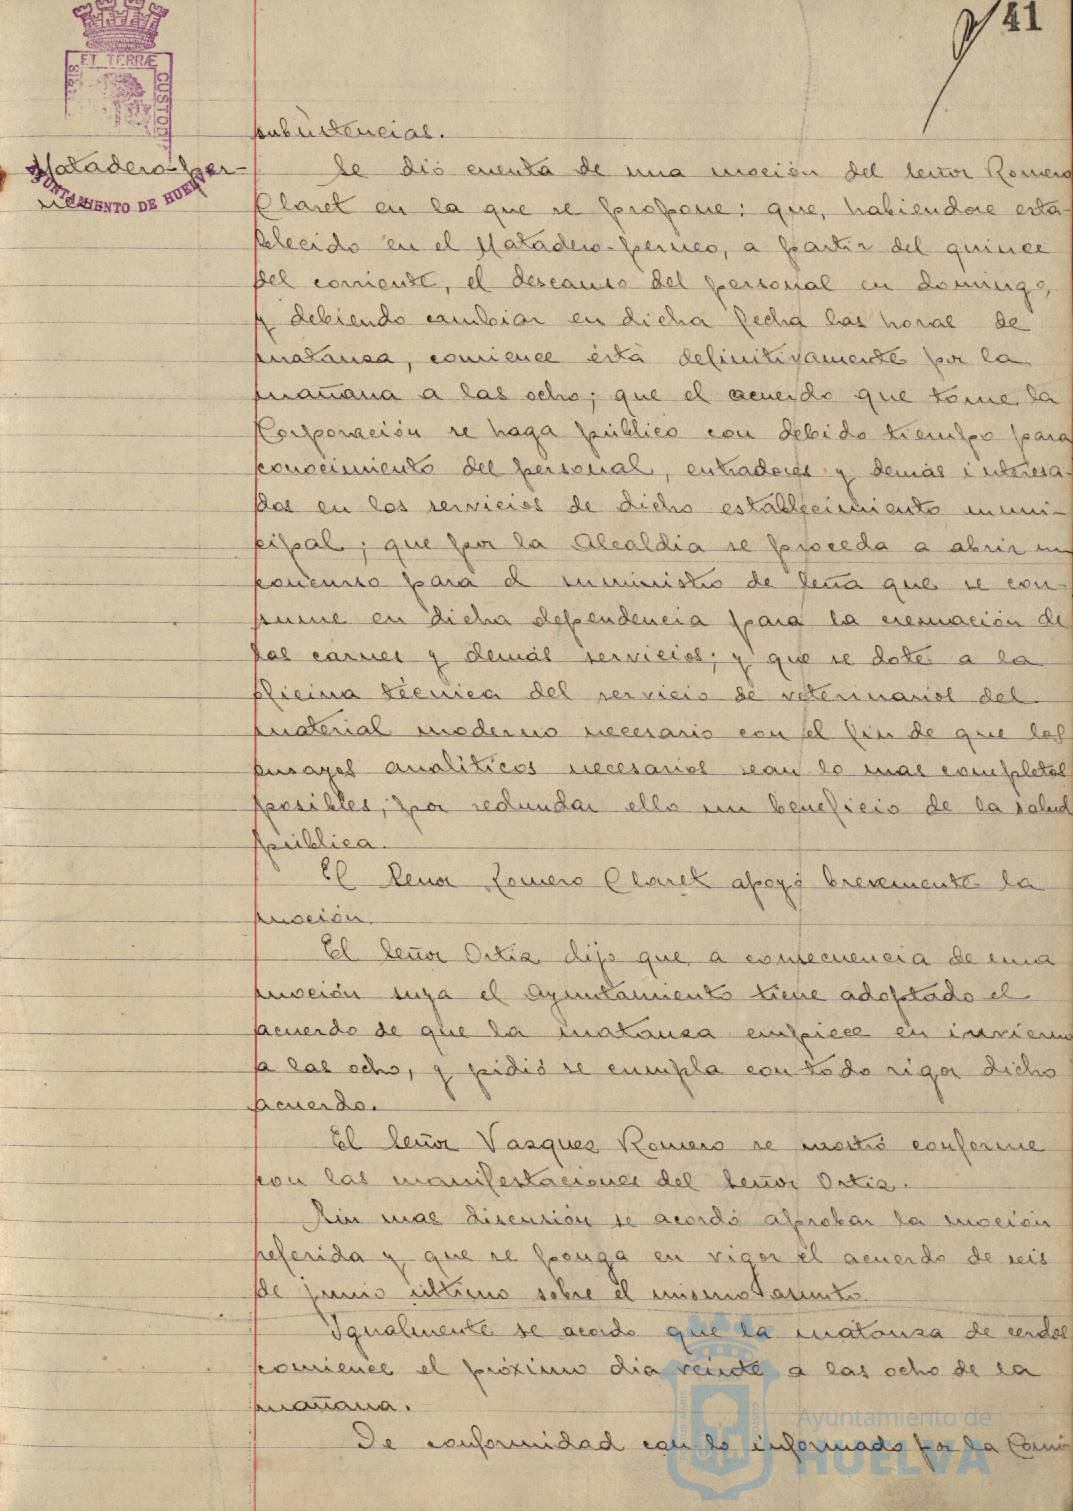 41
ET TERRÆ
CUSTOD
AYUNTAMIENTO DE HUELVA
Matadero-per-
neo
subsistencias.
Se dió cuenta de una moción del Señor Romero
Claret en la que se propone: que, habiendose esta-
blecido en el Matadero-perneo, a partir del quince
del corriente, el descanso del personal en domingo,
y debiendo cambiar en dicha fecha las horas de
matanza, comience ésta definitivamente por la
mañana a las ocho; que el acuerdo que tome la
Corporación se haga público con debido tiempo para
conocimiento del personal, entradores y demás interesa-
dos en los servicios de dicho establecimiento muni-
cipal; que por la Alcaldia se proceda a abrir un
concurso para el suministro de leña que se con-
sume en dicha dependencia para la cremación de
las carnes y demás servicios; y que se dote a la
oficina técnica del servicio de veterinarios del
material moderno necesario con el fin de que los
ensayos analíticos necesarios sean lo mas completos
posibles, por redundar ello un beneficio de la salud
pública.
El Señor Romero Claret apoyó brevemente la
moción.
El Señor Ortiz dijo que a consecuencia de una
moción suya el Ayuntamiento tiene adoptado el
acuerdo de que la matanza empiece en invierno
a las ocho, y pidió se cumpla con todo rigor dicho
acuerdo.
El Señor Vazquez Romero se mostró conforme
con las manifestaciones del Señor Ortiz.
Sin mas discusión se acordó aprobar la moción
referida y que se ponga en vigor el acuerdo de seis
de junio último sobre el mismo asunto.
Igualmente se acordo que la matanza de cerdos
comience el próximo dia veinte a las ocho de la
mañana.
De conformidad con lo informado por la Comi-
Ayuntamiento de
HUELVA